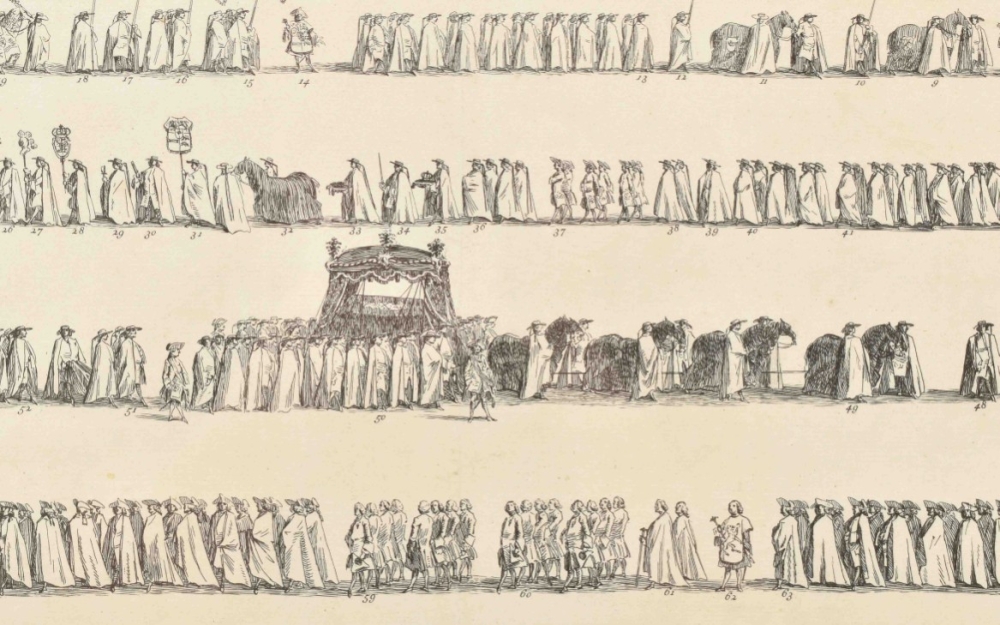 9 18 17 16 15 14 13 12 11 10 9
26 27 28 29 30 31 32 33 34 35 36 37 38 39 40 41
52 51 50 49 48
59 60 61 62 63